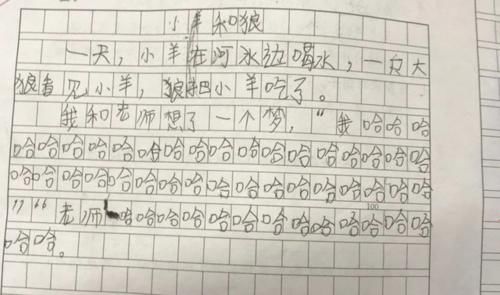 小羊和狼
一天，小羊在河水边喝水，一只大
狼看见小羊，狼把小羊吃了。
我和老师想了一个梦，“我哈哈哈
哈哈哈哈哈哈哈哈哈哈哈哈哈哈哈哈哈哈
哈哈哈哈哈哈哈哈哈哈哈哈哈哈哈哈哈哈
100
”“老师哈哈哈哈哈哈哈哈哈哈哈哈哈
哈哈。